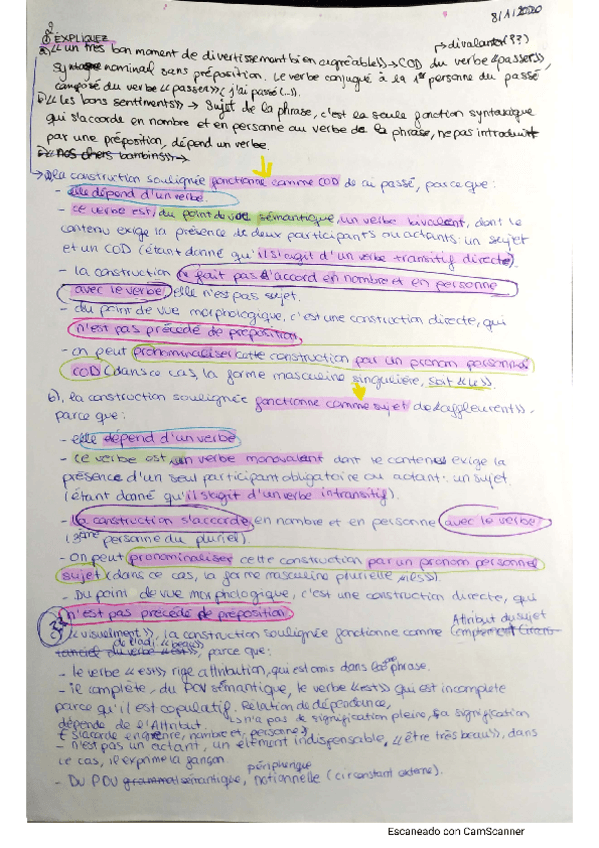 8/1/2020
2
① EXPLIQUEZ
a) « un très bon moment de divertissement bien agréable » → COD du verbe « passer » → divalent (??)
Syntagme nominal sans préposition. Le verbe conjugué à la 1ère personne du passé
composé du verbe « passer » (j'ai passé (...)).
b) « les bons sentiments » → Sujet de la phrase, c'est la seule fonction syntaxique
qui s'accorde en nombre et en personne au verbe de la phrase, ne pas introduit
par une préposition, dépend un verbe.
« nos chers bambins » →
→ a) la construction soulignée fonctionne comme COD de ai passé, parce que :
- elle dépend d'un verbe.
- ce verbe est, du point de vue sémantique, un verbe bivalent, dont le
contenu exige la présence de deux participants ou actants : un sujet
et un COD (étant donné qu'il s'agit d'un verbe transitif direct).
- la construction fait pas d'accord en nombre et en personne
avec le verbe, elle n'est pas sujet.
- du point de vue morphologique, c'est une construction directe, qui
n'est pas précédé de préposition.
- on peut pronominaliser cette construction par un pronom personnel
COD (dans ce cas, la forme masculine singulière, soit « le »).
b), la construction soulignée fonctionne comme sujet de « affleurent »,
parce que :
- elle dépend d'un verbe
- ce verbe est un verbe monovalent dont le contenu exige la
présence d'un seul participant obligatoire ou actant : un sujet
(étant donné qu'il s'agit d'un verbe intransitif).
- la construction s'accorde en nombre et en personne avec le verbe
(3ème personne du pluriel).
- On peut pronominaliser cette construction par un pronom personnel
sujet (dans ce cas, la forme masculine plurielle « ils »).
- Du point de vue morphologique, c'est une construction directe, qui
n'est pas précédé de préposition
Attribut du sujet
« visuelment », la construction soulignée fonctionne comme complement
de l'adj « beau »
du verbe « est », parce que :
- le verbe « est » rige attribution, qui est omis dans la phrase.
- il complète, du POV sémantique, le verbe « est » qui est incomplete
parce qu'il est copulatif. Relation de dépendance,
n'a pas de signification pleine, sa signification
dépende de l'Attribut.
(s'accorde en genre, nombre et personne)
- n'est pas un actant, un élément indispensable, « être très beau », dans
ce cas, il exprime la façon.
périphérique
- Du POV sémantique, notionnelle (circonstant externe).
Escaneado con CamScanner